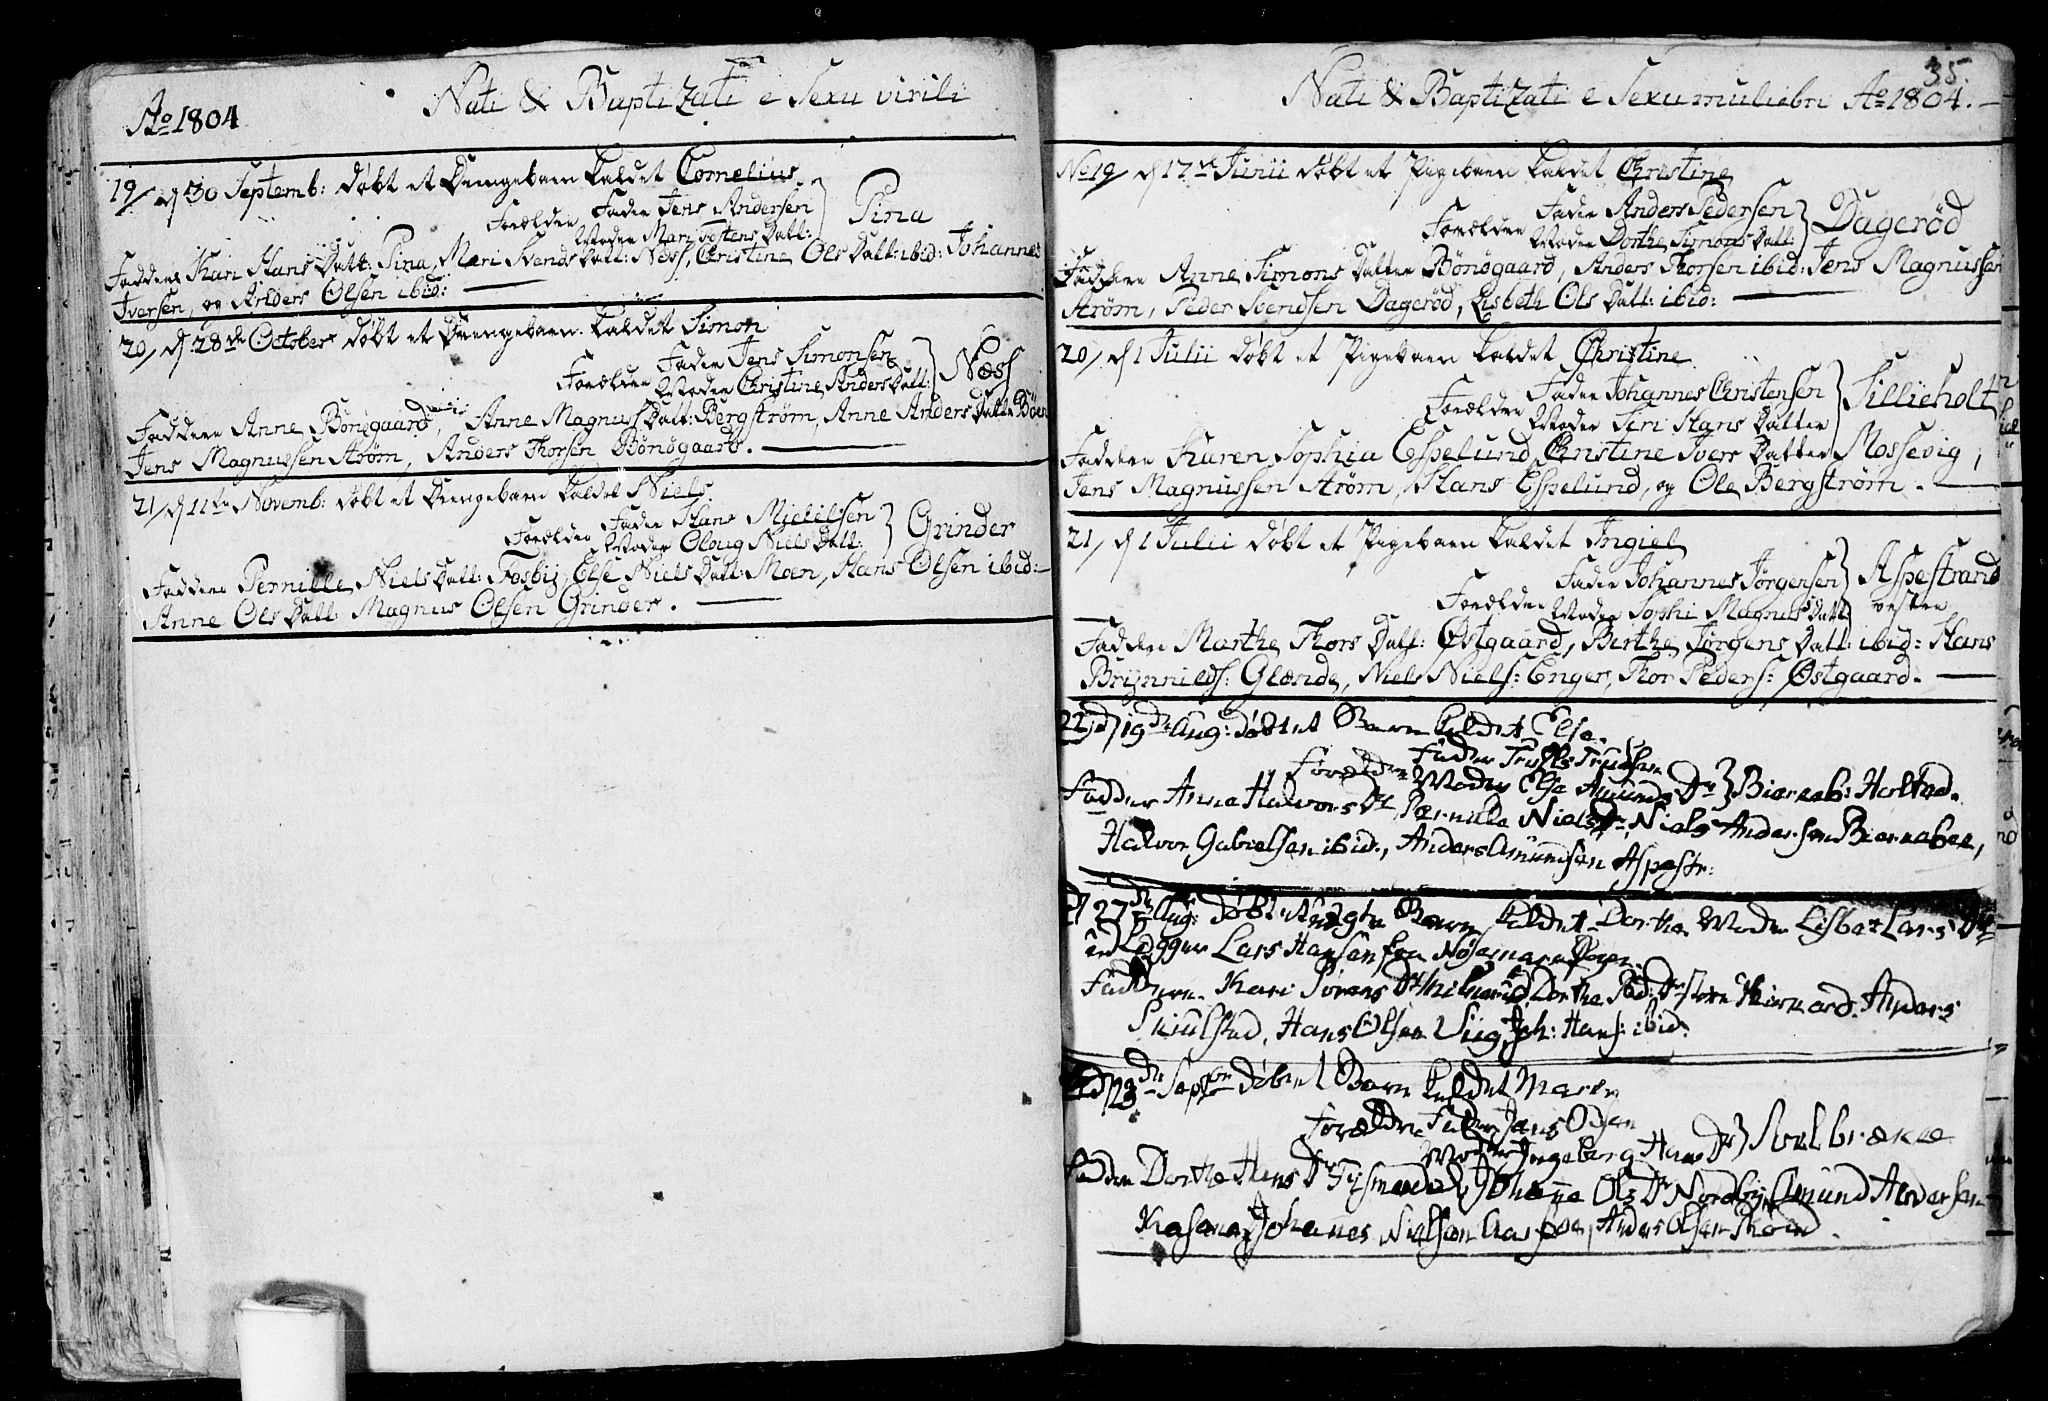 Ao 1804
Nati & Baptizati e Sexu virili
19/ d 30 Septemb: døbt et Drengebarn kaldet Cornelius
Forældre Fader Jens Andersen
Moder Mari Tostens Datt: } Pina
Faddere Kari Hans Datt: Pina, Mari Svends Datt: Næss, Christine Ols Datt: ibid: Johannes
Iversen, og Anders Olsen ibid:
20/ d 28de October døbt et Drengebarn kaldet Simon
Forældre Fader Jens Simonsen
Moder Christine Anders Datt: } Næss
Faddere Anne Bönögaard, Anne Magnus Datt: Bergstrøm, Anne Anders Datter Böen
Jens Magnussen Strøm, Anders Thorsen Bönögaard.
21/ d 11te Novemb: døbt et Drengebarn kaldet Niels
Forældre Fader Hans Mickelsen
Moder Oloug Niels Datt: } Grinder
Faddere Pernille Niels Datt: Fosbÿ, Else Niels Datt: Moen, Hans Olsen ibid:
Anne Ols Datt: Magnus Olsen Grinder.
35.
Nati & Baptizati e Sexu muliebri Ao 1804.
No 19/ d 17de Junii døbt et Pigebarn kaldet Christine
Forældre Fader Anders Pedersen
Moder Dorthe Simons Datt: } Dagerød
Faddere Anne Simons Datter Bönögaard, Anders Thorsen ibid: Jens Magnussen
Strøm, Peder Svendsen Dagerød, Lisbeth Ols Datt: ibid:
20/ d 1 Julii døbt et Pigebarn kaldet Christine
Forældre Fader Johannes Christensen
Moder Siri Hans Datter } Sillieholt
Faddere Karen Sophia Espelund, Christine Ivers Datter Mossevig,
Jens Magnussen Strøm, Hans Espelund, og Ole Bergstrøm.
21/ d 1 Julii døbt et Pigebarn kaldet Ingiel
Forældre Fader Johannes Jørgensen
Moder Sophi Magnus Datt } Aspestrand vestre
Faddere Marthe Thors Datt: Østgaard, Birthe Jørgens Datt: ibid: Hans
Brÿnnilds: Glænde, Niels Niels: Enger, Thor Peders: Østgaard.
22/ d 19de Aug: døbt et Barn kaldet Else.
Forældre Fader Truls Trulsen
Moder Else Amunds Dr } Biørneb: Harstad.
Fadder Anne Halvors Dr, Pernille Niels Dr, Niels Andersen Biørnebøe,
Halvor Gabrielsen ibid., Anders Amundsen Aspestr:
d 27de Aug: døbt et uægte Barn kaldet Dorthe Moder Lisbet Lars Dr
Lars Hansen fra
Faddere. Kari Sørens Dr Dorthe Ped: Dr Anders
Skiulstad, Hans Olsen Siig Joh: Hans: ibid.
d 23de Septbr døbt et Barn kaldet Maren
Forældre Fader Jens Olsen
Moder Ingeborg Hans Dr } Solbrække
Fadder Dorthe Hans Dr Johanne Ols Dr Nordby, Amund Halvorsen
Johannes Nielsen Aasebøe, Anders Olsen Røed.